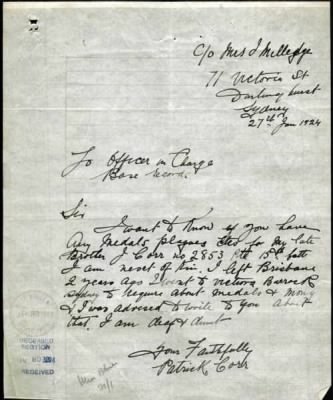 C/o Mrs J Milledge
71 Victoria St
Darlinghurst
Sydney
27th Jan 1924
To Officer in Charge
Base Records
Sir
I want to Know if you have
Any Medals plaques etc for My late
Brother J Corr no 2853 Pte 15th batt
I am next of Kin. I left Brisbane
2 years ago I went to Victoria Barrack
Sydney to Inquire about Medals & Money
& I was advised to write to You about
that. I am deaf & dumb
Yours Faithfully
Patrick Corr
RECEIVED